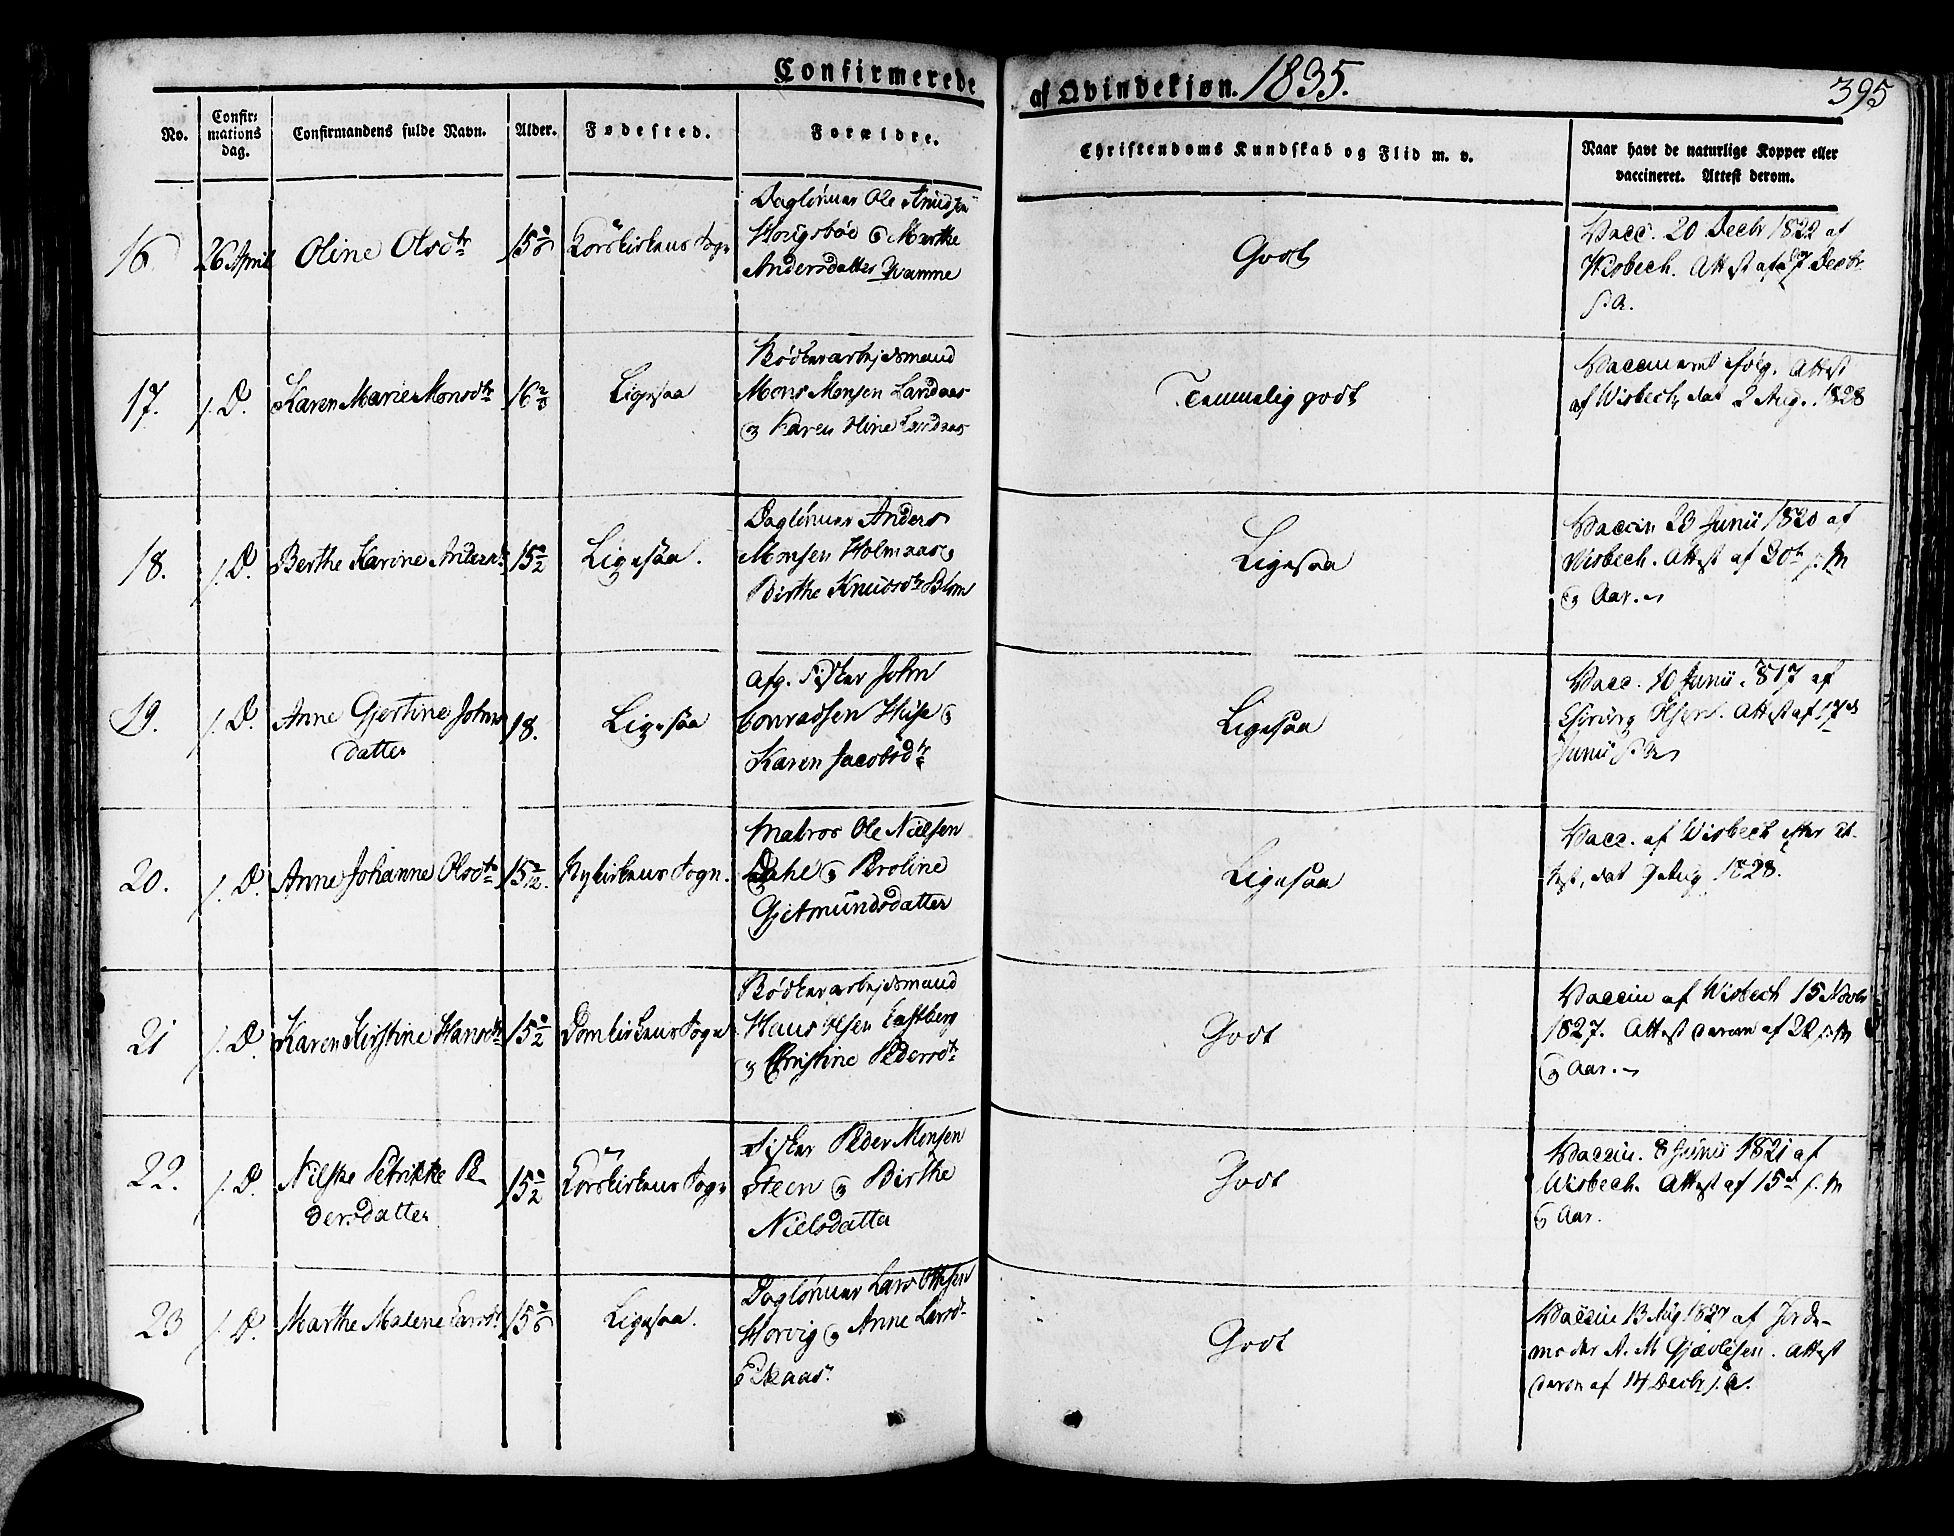 Confirmerede af Qvindekjøn. 1835. 395
No.
Confir-
mations
dag.
Confirmandens fulde Navn.
Alder.
Fødested.
Forældre.
Christendoms Kundskab og Flid m. v.
Naar havt de naturlige Kopper eller
vaccineret. Attest derom.
16
26 April
Oline Olsdtr
15
Korskirkens Sogn
Daglønner Ole Knudsen
Hougsbøe & Marthe
Andersdatter Qvamme
Godt
Vacc. 20 Decbr 1822 af
Wisbech. Attest af 27 Decbr
s. A.
17.
s. D.
Karen Marie Monsdtr
16 2/3
Ligesaa
Bødkerarbejdsmand
Mons Monsen Landaas
& Karen Oline Landaas
Temmelig godt
Vaccineret ifølg. Attest
af Wisbech, dat 2 Aug. 1828
18.
s. D.
Berthe Karine Andersdtr
15 1/2
Ligesaa.
Daglønner Anders
Monsen Holmaas &
Birthe Knudsdtr Blom
Ligesaa
Vaccin 23 Junii 1820 af
Wisbech. Attest af 30te s. M
& Aar.
19.
s. D.
Anne Gjertine Johns
datter
18.
Ligesaa
Afg. Fisker John
Conradsen Huse &
Karen Jacobsdtr
Ligesaa
Vacc. 10 Junii 1817 af
Chirurg Olsen. Attest af 17de
Junii s. A.
20.
s. D.
Anne Johanne Olsdtr
15
Nykirkens Sogn.
Matros Ole Nielsen
Dahl & Broline
Gjetmundsdatter
Ligesaa
Vacc. af Wisbech efter At-
test, dat 9 Aug 1828.
21
s. D.
Karen Kirstine Hansdtr
15 1/2
Domkirkens Sogn
Bødkerarbejdsmand
Hans Olsen Eastberg
& Christine Pedersdtr
Godt
Vaccin af Wisbech 15 Novbr
1827. Attest derom af 22 s. M
& Aar.
22.
s. D.
Nilske Petrikke Pe-
dersdatter
15 1/2
Korskirkens Sogn
Fisker Peder Monsen
Steen & Birthe
Nielsdatter
Godt
Vaccin. 8 Junii 1821 af
Wisbech. Attest af 15de s. M
& Aar.
23
s. D.
Marthe Malene Larsdtr
15
Ligesaa.
Daglønner Lars Ottesen
Horvig & Anne Larsd.
Eikaas.
Godt
Vaccin 13 Aug 1827 af Jorde-
moder A. M Gjævlesen. Attest
derom af 14 Decbr s. A.